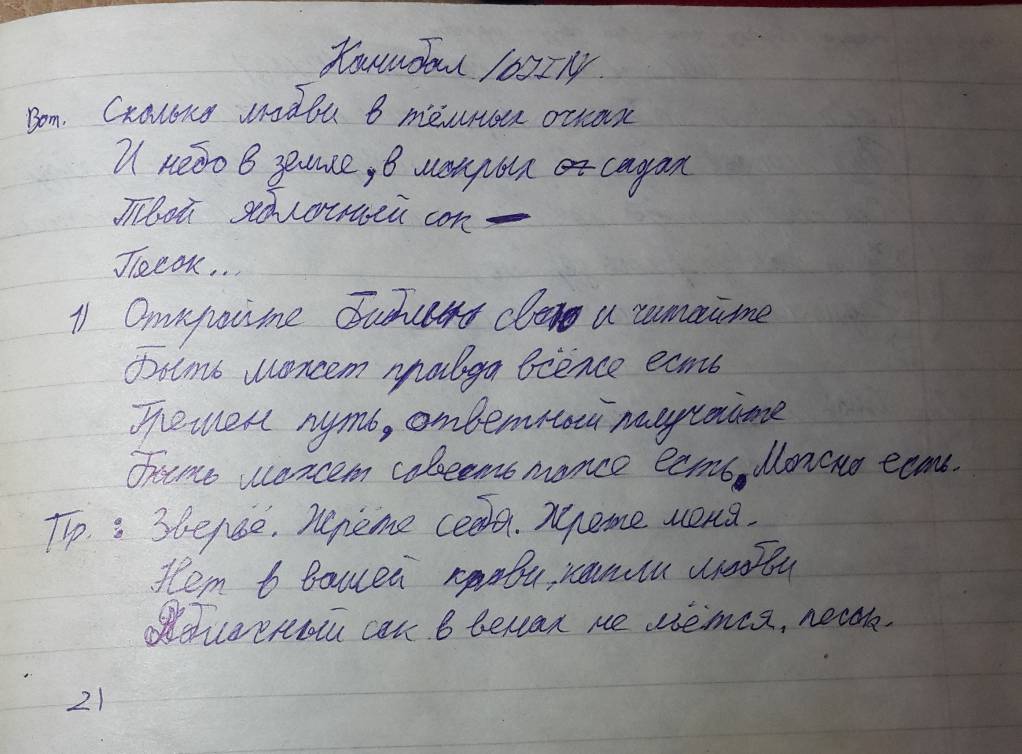 Канибал
Вот. Сколько любви в тёмных очках
И небо в земле, в мокрых садах
Твой яблочный сок —
Песок...
1) Откройте Библию свою и читайте
Быть может правда всёже есть
Грешен путь, ответный получайте
Быть может совесть тоже есть, Можно есть.
Пр.: Зверьё. Жрёте себя. Жрёте меня.
Нет в вашей крови, капли любви
Яблочный сок в венах не льётся, песок.
2)